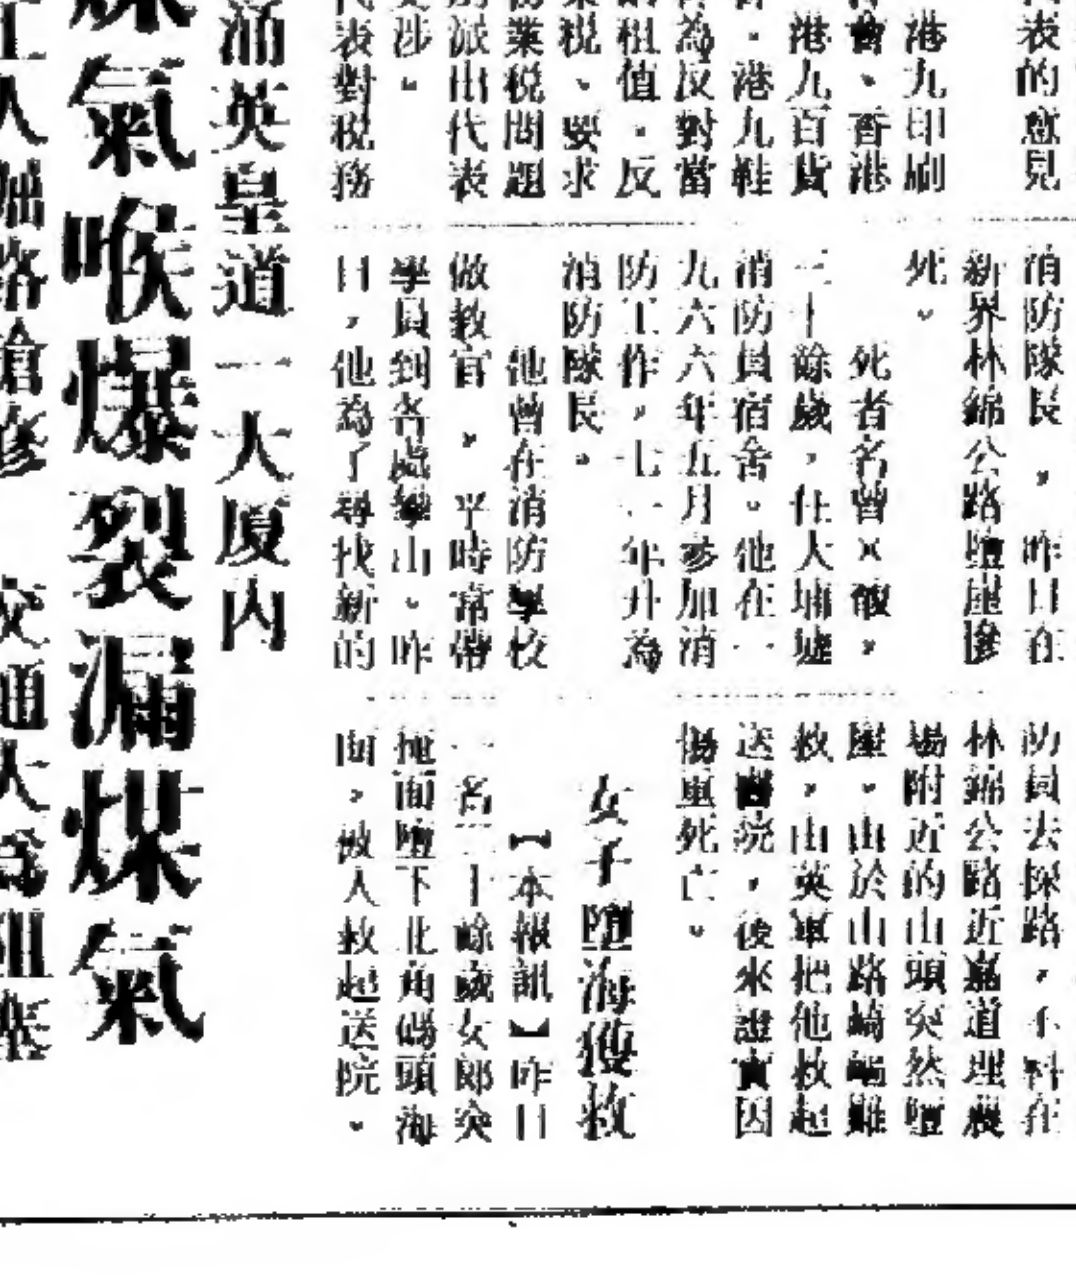 表的意見
港九印刷
會、香港
港九百貨
・港九鞋
為反對當
租值・反
税、要求
業税問題
派出代表
涉。
表對税務
消防隊長,昨日在
新界林錦公路墮崖慘
死。
死者名曾×
三十餘歲,住大埔墟
消防員宿舍。他在一
九六六年五月參加消
防工作,七一年升為
消防隊長。
他曾在消防學校
做教官,平時常帶
學員到各處攀山。昨
日,他為了尋找新的
去探路,不料在
林錦公路近嘉道理農
場附近的山頭突然墮
崖。由於山路崎嶇難
救,由英軍把他救起
送醫院,後來證實因
傷重死亡。
女子墮海獲救
【本報訊】昨日
一名二十餘歲女郎突
掩面墮下北角碼頭海
面,被人救起送院。
涌英皇道一大厦內
煤氣喉爆裂漏煤氣
工人掘路搶修 交通大為阻塞